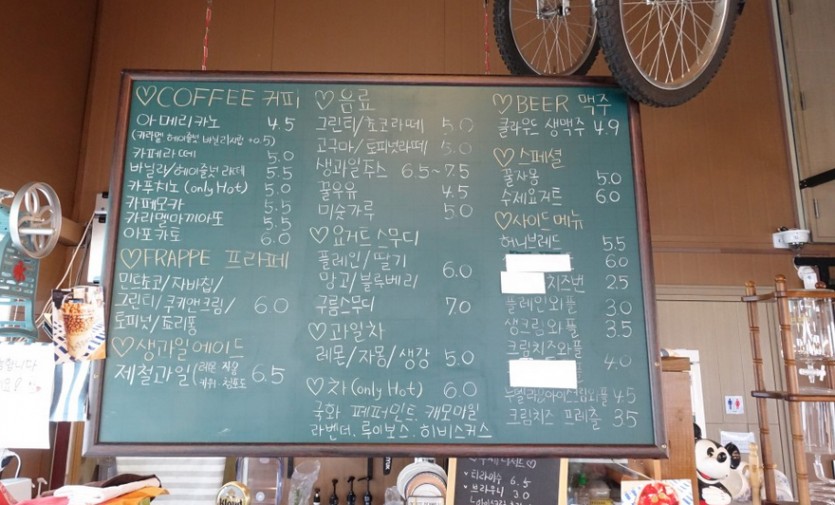 ♡COFFEE 커피
아메리카노 4.5
(카라멜 헤이즐넛 바닐라시럽 +0.5)
카페라떼 5.0
바닐라/헤이즐넛 라떼 5.5
카푸치노 (only Hot) 5.0
카페모카 5.5
카라멜마끼아또 5.5
아포카토 6.0
♡FRAPPE 프라페
민트초코/자바칩/
그린티/쿠키앤크림/ 6.0
토피넛/초리퐁
♡생과일에이드
제철과일 (레몬 자몽 6.5
키위·청포도
♡음료
그린티/초코라떼 5.0
고구마/토피넛라떼 5.0
생과일주스 6.5~7.5
꿀우유 4.5
미숫가루 5.0
♡요거트스무디
플레인/딸기
망고/블루베리 6.0
구름스무디 7.0
♡과일차
레몬/자몽/생강 5.0
♡차 (only Hot) 6.0
국화 페퍼민트 캐모마일
라벤더. 루이보스. 히비스커스
♡BEER 맥주
클라우드 생맥주 4.9
♡스페셜
꿀자몽 5.0
수제요거트 6.0
♡사이드메뉴
허니브레드 5.5
6.0
치즈번 2.5
플레인와플 3.0
생크림와플 3.5
크림치즈와플
4.0
4.5
크림치즈 프레즐 3.5
티라미수 6.5
브라우니 3.0